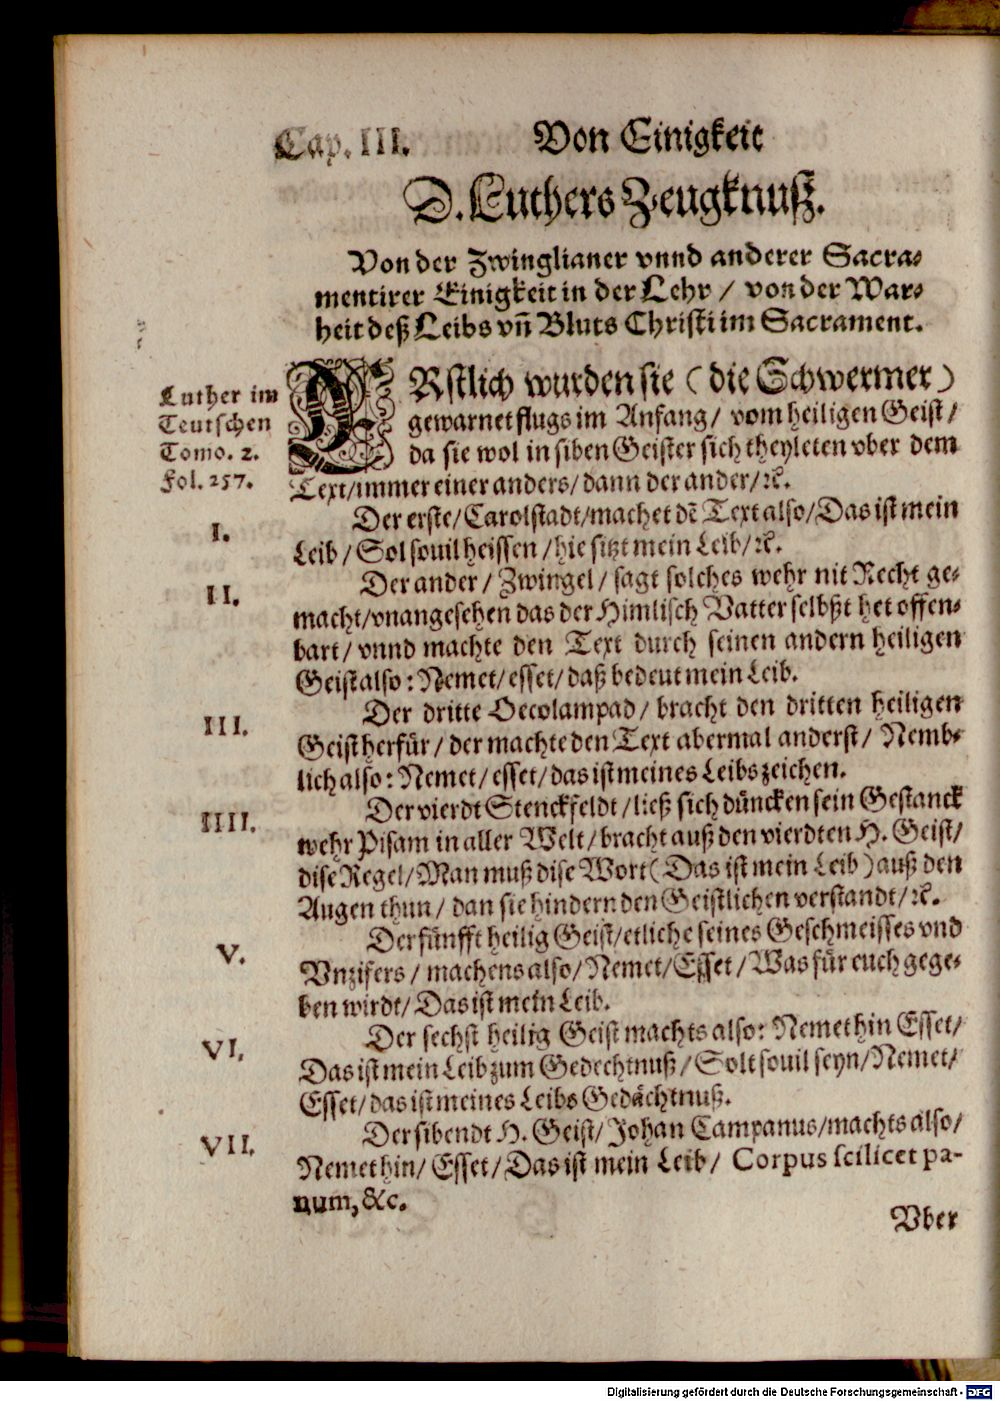 Cap. III. Von Einigkeit
D. Luthers Zeugknuß.
Von der Zwinglianer vnnd anderer Sacra-
mentirer Einigkeit in der Lehr / von der War-
heit deß Leibs vn̄ Bluts Christi im Sacrament.
Luther im
Teutschen
Tomo. 2.
Fol. 257.
ERstlich wurden sie (die Schwermer)
gewarnet flugs im Anfang / vom heiligen Geist /
da sie wol in siben Geister sich theyleten vber dem
Text / immer einer anders / dann der ander / ꝛc.
I. Der erste / Carolstadt / machet dē Text also / Das ist mein
Leib / Sol souil heissen / hie sitzt mein Leib / ꝛc.
II. Der ander / Zwingel / sagt solches wehr nit Recht ge-
macht / vnangesehen das der Himlisch Vatter selbßt het offen-
bart / vnnd machte den Text durch seinen andern heiligen
Geist also : Nemet / esset / daß bedeut mein Leib.
III. Der dritte Oecolampad / bracht den dritten heiligen
Geist herfür / der machte den Text abermal anderst / Nemb-
lich also : Nemet / esset / das ist meines Leibs zeichen.
IIII. Der vierdt Stenckfeldt / ließ sich düncken sein Gestanck
wehr Pisam in aller Welt / bracht auß den vierdten H. Geist /
dise Regel / Man muß dise Wort (Das ist mein Leib) auß den
Augen thun / dan sie hindern den Geistlichen verstandt / ꝛc.
V. Der fünfft heilig Geist / etliche seines Geschmeisses vnd
Vnzifers / machens also / Nemet / Esset / Was für euch gege-
ben wirdt / Das ist mein Leib.
VI. Der sechst heilig Geist machts also : Nemet hin Esset /
Das ist mein Leib zum Gedechtnuß / Solt souil seyn / Nemet /
Esset / das ist meines Leibs Gedächtnuß.
VII. Der sibendt H. Geist / Johan Campanus / machts also /
Nemet hin / Esset / Das ist mein Leib / Corpus scilicet pa-
num, &c.
Vber
Digitalisierung gefördert durch die Deutsche Forschungsgemeinschaft - DFG